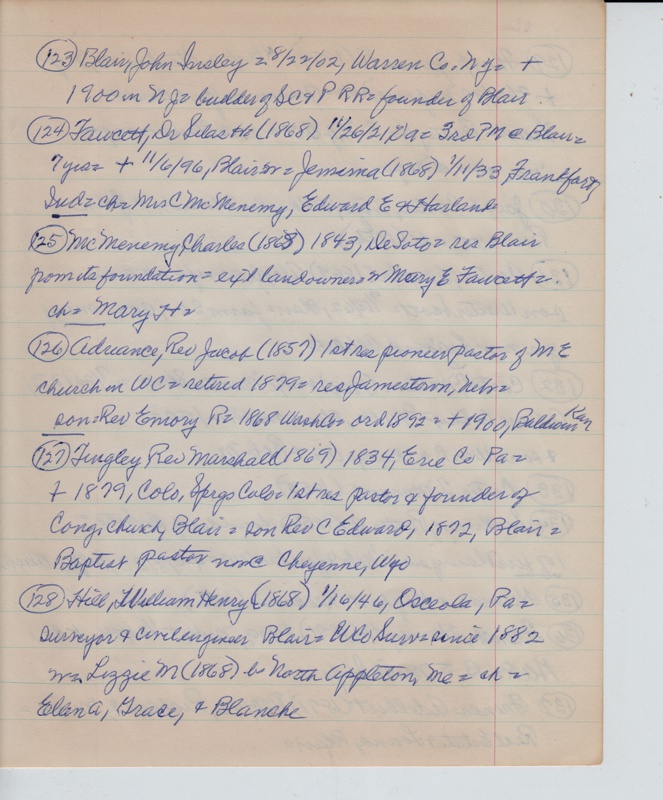 (123) Blair, John Insley = 8/22/02, Warren Co. N J = +
1900 in N J = builder of SC & P RR = founder of Blair.
(124) Fawcett, Dr Silas H (1868) 11/26/21, Va = 3rd PM @ Blair =
7 yrs = + 11/6/96, Blair w = Jemima (1868) 1/11/33, Frankfort,
Ind = ch = Mrs C McMenemy, Edward E & Harland
(125) McMenemy, Charles (1868) 1843, DeSoto = res Blair
from its foundation = ext landowner = w Mary E Fawcett =
ch = Mary H =
(126) Adriance, Rev Jacob (1857) 1st res pioneer pastor of M E
church in WC = retired 1879 = res Jamestown, Neb =
son = Rev Emory R = 1868 Wash Co = ord 1892 = + 1900, Baldwin Kan
(127) Tingley Rev Marshall (1869) 1834, Erie Co Pa =
+ 1879, Colo, Spgs Colo = 1st res pastor & founder of
Cong. church, Blair = son Rev C Edward, 1872, Blair =
Baptist pastor now Cheyenne, Wyo
(128) Hill, William Henry (1868) 1/16/46, Osceola, Pa =
surveyor & civil engineer Blair = WCo Surv = since 1882
w = Lizzie M (1868) b North Appleton, Me = ch =
Elena, Grace, & Blanche